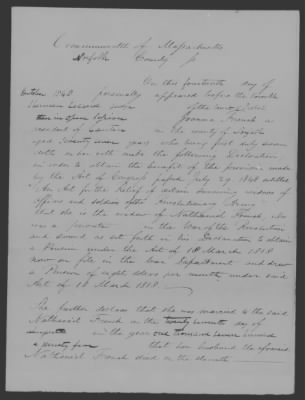 Commonwealth of Massachusetts
Norfolk County ss
On this fourteenth day of
October 1848 personally appeared before the
Sherman Leland Judge of the Court of Probate
then in open Session Joanna French a
resident of Canton in the county of Norfolk
aged seventy seven years who being first duly sworn
doth on oath make the following Declaration
in order to obtain the benefit of the provision made
by the Act of Congress passed July 1848 entitled
"An Act for the Relief of certain Surviving widows of
officers and soldiers of the Revolutionary Army"
that she is the widow of Nathaniel French who
was a private in the War of the Revolution
and served as set forth in his Declaration to obtain
a Pension under the Act of 18 March 1818
now on file in the War Department and drew
a Pension of eight dollars per month under said
Act of 18 March 1818.
She further declares that she was married to the said
Nathaniel French on the twenty seventh day of
August in the year one thousand seven hundred
& ninety four that her husband the aforesaid
Nathaniel French died on the eleventh